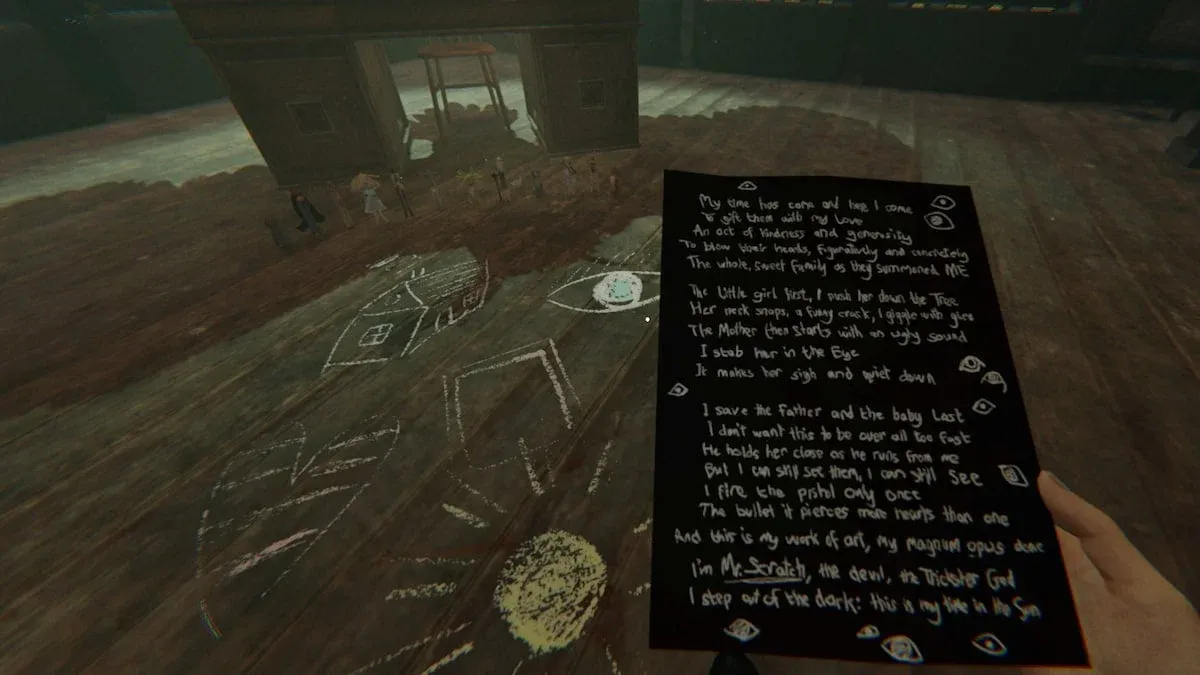 My time has come and here I come
To gift them with my Love
An act of kindness and generosity
To blow their heads, figuratively and concretely
The whole, sweet family as they summoned ME
The Little girl first, I push her down the Tree
Her neck snaps, a funny crack, I giggle with glee
The Mother then starts with an ugly sound
I stab her in the Eye
It makes her sigh and quiet down
I save the Father and the baby Last
I don't want this to be over all too fast
He holds her close as he runs from me
But I can still see them, I can still See
I fire the pistol only once
The bullet it pierces more hearts than one
And this is my work of art, my magnum opus done
I'm Mr. Scratch, the devil, the Trickster God
I step out of the dark: this is my time in the Sun